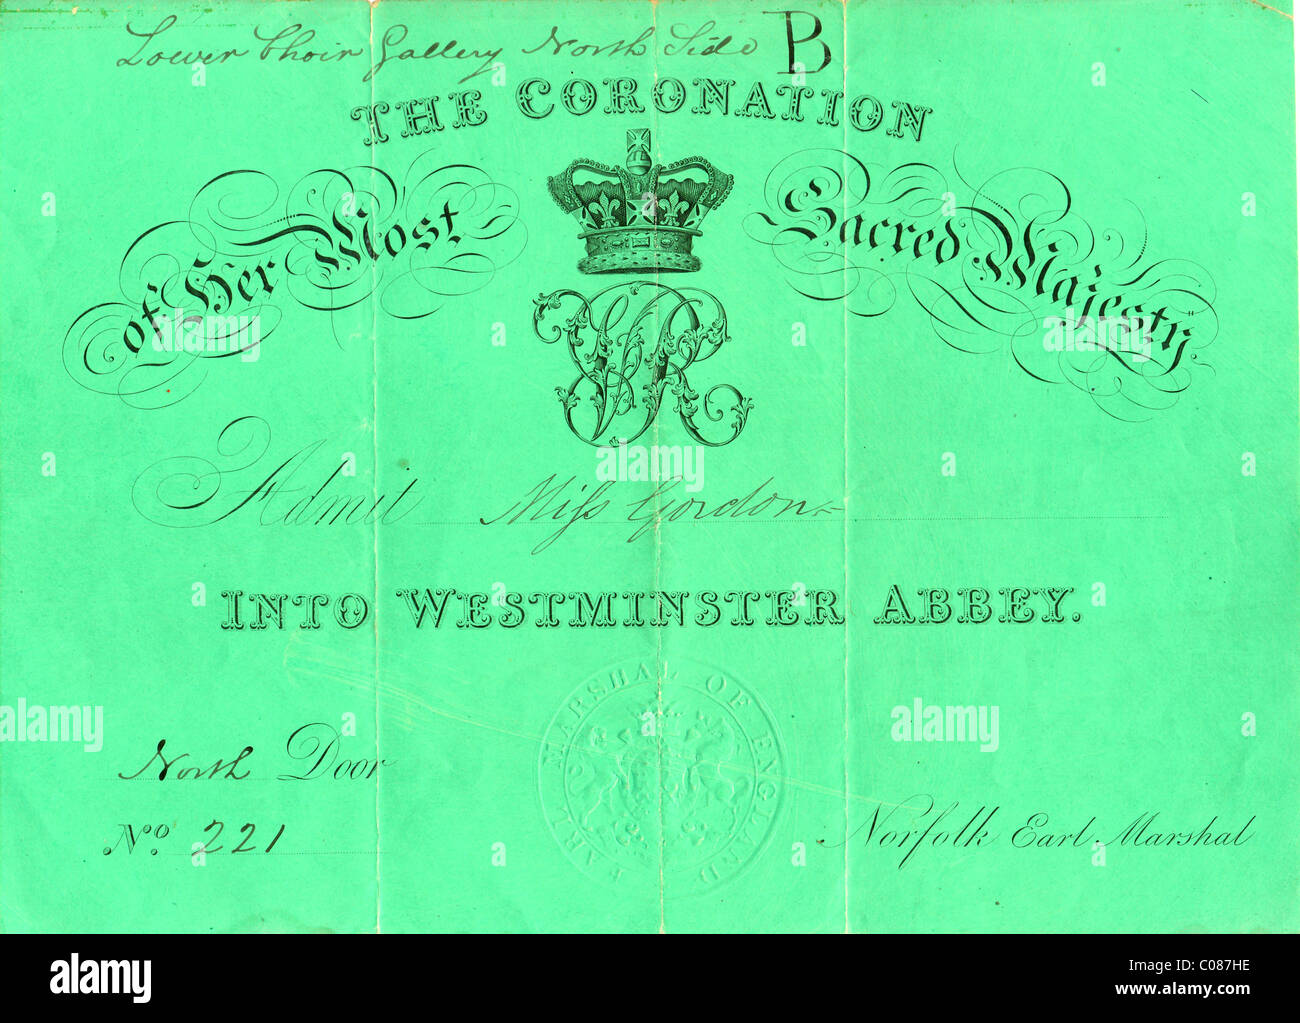 Lower Choir Gallery North Side B
THE CORONATION
of Her Most Sacred Majesty
VR
Admit Miss Gordon
INTO WESTMINSTER ABBEY.
EARL MARSHAL OF ENGLAND
North Door
No. 221
Norfolk Earl Marshal
alamy
Image ID: C087HE
www.alamy.com